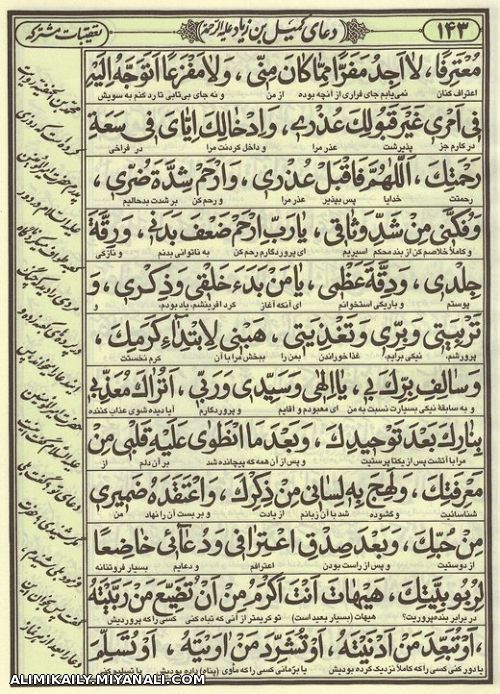 ۱۴۳
دعای کمیل بن زیاد علیه الرحمة
تعقیبات مشترکه
مُعْتَرِفًا، لَا اَجِدُ مَفَرًّا مِمَّا کَانَ مِنّی، وَلَا مَفْزَعًا اَتَوَجَّهُ اِلَیْهِ
اعتراف کنان نمی‌یابم جای فراری از آنچه بوده از من و نه جای بی‌تابی تا رد کنم به سویش
فی اَمْری غَیْرَ قَبُولِکَ عُذْری، وَاِدْخَالِکَ اِیَّایَ فی سَعَةِ
در کارم جز پذیرشت عذر مرا و داخل کردنت مرا در فراخی
رَحْمَتِکَ، اَللّٰهُمَّ فَاقْبَلْ عُذْری، وَارْحَمْ شِدَّةَ ضُرّی،
رحمتت خدایا پس بپذیر عذر مرا و رحم کن بر شدت بدحالیم
وَفُکَّنی مِنْ شَدِّ وَثَاقی، یَارَبِّ ارْحَمْ ضَعْفَ بَدَنی، وَرِقَّةَ
و کاملا خلاصم کن از بند محکم اسیریم ای پروردگارم رحم کن به ناتوانی بدنم و نازکی
جِلْدی، وَدِقَّةَ عَظْمی، یَامَنْ بَدَءَ خَلْقی وَذِکْری، وَ
پوستم و باریکی استخوانم ای آنکه آغاز کرد آفرینشم، یاد بودم، و
تَرْبِیَتی وَبِرّی وَتَغْذِیَتی، هَبْنی لِابْتِدَاءِ کَرَمِکَ،
پرورشم، نیکی برایم، غذا خوراندن بمن را ببخش مرا با آن کرم نخستت
وَسَالِفِ بِرِّکَ بی، یَااِلٰهی وَسَیِّدی وَرَبّی، اَتُرَاکَ مُعَذِّبی
و به سابقهٔ نیکی بسیارت نسبت به من ای معبودم و آقایم و پروردگارم آیا دیده شوی عذاب کننده
بِنَارِکَ بَعْدَ تَوْحیدِکَ، وَبَعْدَ مَا انْطَوٰی عَلَیْهِ قَلْبی مِنْ
مرا با آتشت پس از یکتا پرستیت و پس از آن همه که پیچانده شد بر آن دلم از
مَعْرِفَتِکَ، وَلَهِجَ بِهِ لِسَانی مِنْ ذِکْرِکَ، وَاعْتَقَدَهُ ضَمیری
شناسائیت و گشوده شد با آن زبانم از یادت و بر بست آن را نهاد من
مِنْ حُبِّکَ، وَبَعْدَ صِدْقِ اعْتِرَافی وَدُعَائی خَاضِعًا
از دوستیت و پس از راست بودن اعترافم و دعایم بسیار فروتنانه
لِرُبُوبِیَّتِکَ، هَیْهَاتَ اَنْتَ اَکْرَمُ مِنْ اَنْ تُضَیِّعَ مَنْ رَبَّیْتَهُ
در برابر بنده‌پروریت؟ هیهات (بسیار بعید است) تو کریمتر از آنی که تباه کنی کسی را که پروردیش
، اَوْتُبَعِّدَ مَنْ اَدْنَیْتَهُ، اَوْ تُشَرِّدَ مَنْ اٰوَیْتَهُ، اَوْ تُسَلِّمَ
یا دور کنی کسی را که کاملا نزدیک کرده بودیش یا برمانی کسی را که مأوی (پناه) داده بودیش یا تسلیم کنی
ALIMIKAILY.MIYANALI.COM
ALIMIKAILY.MIYANALI.COM